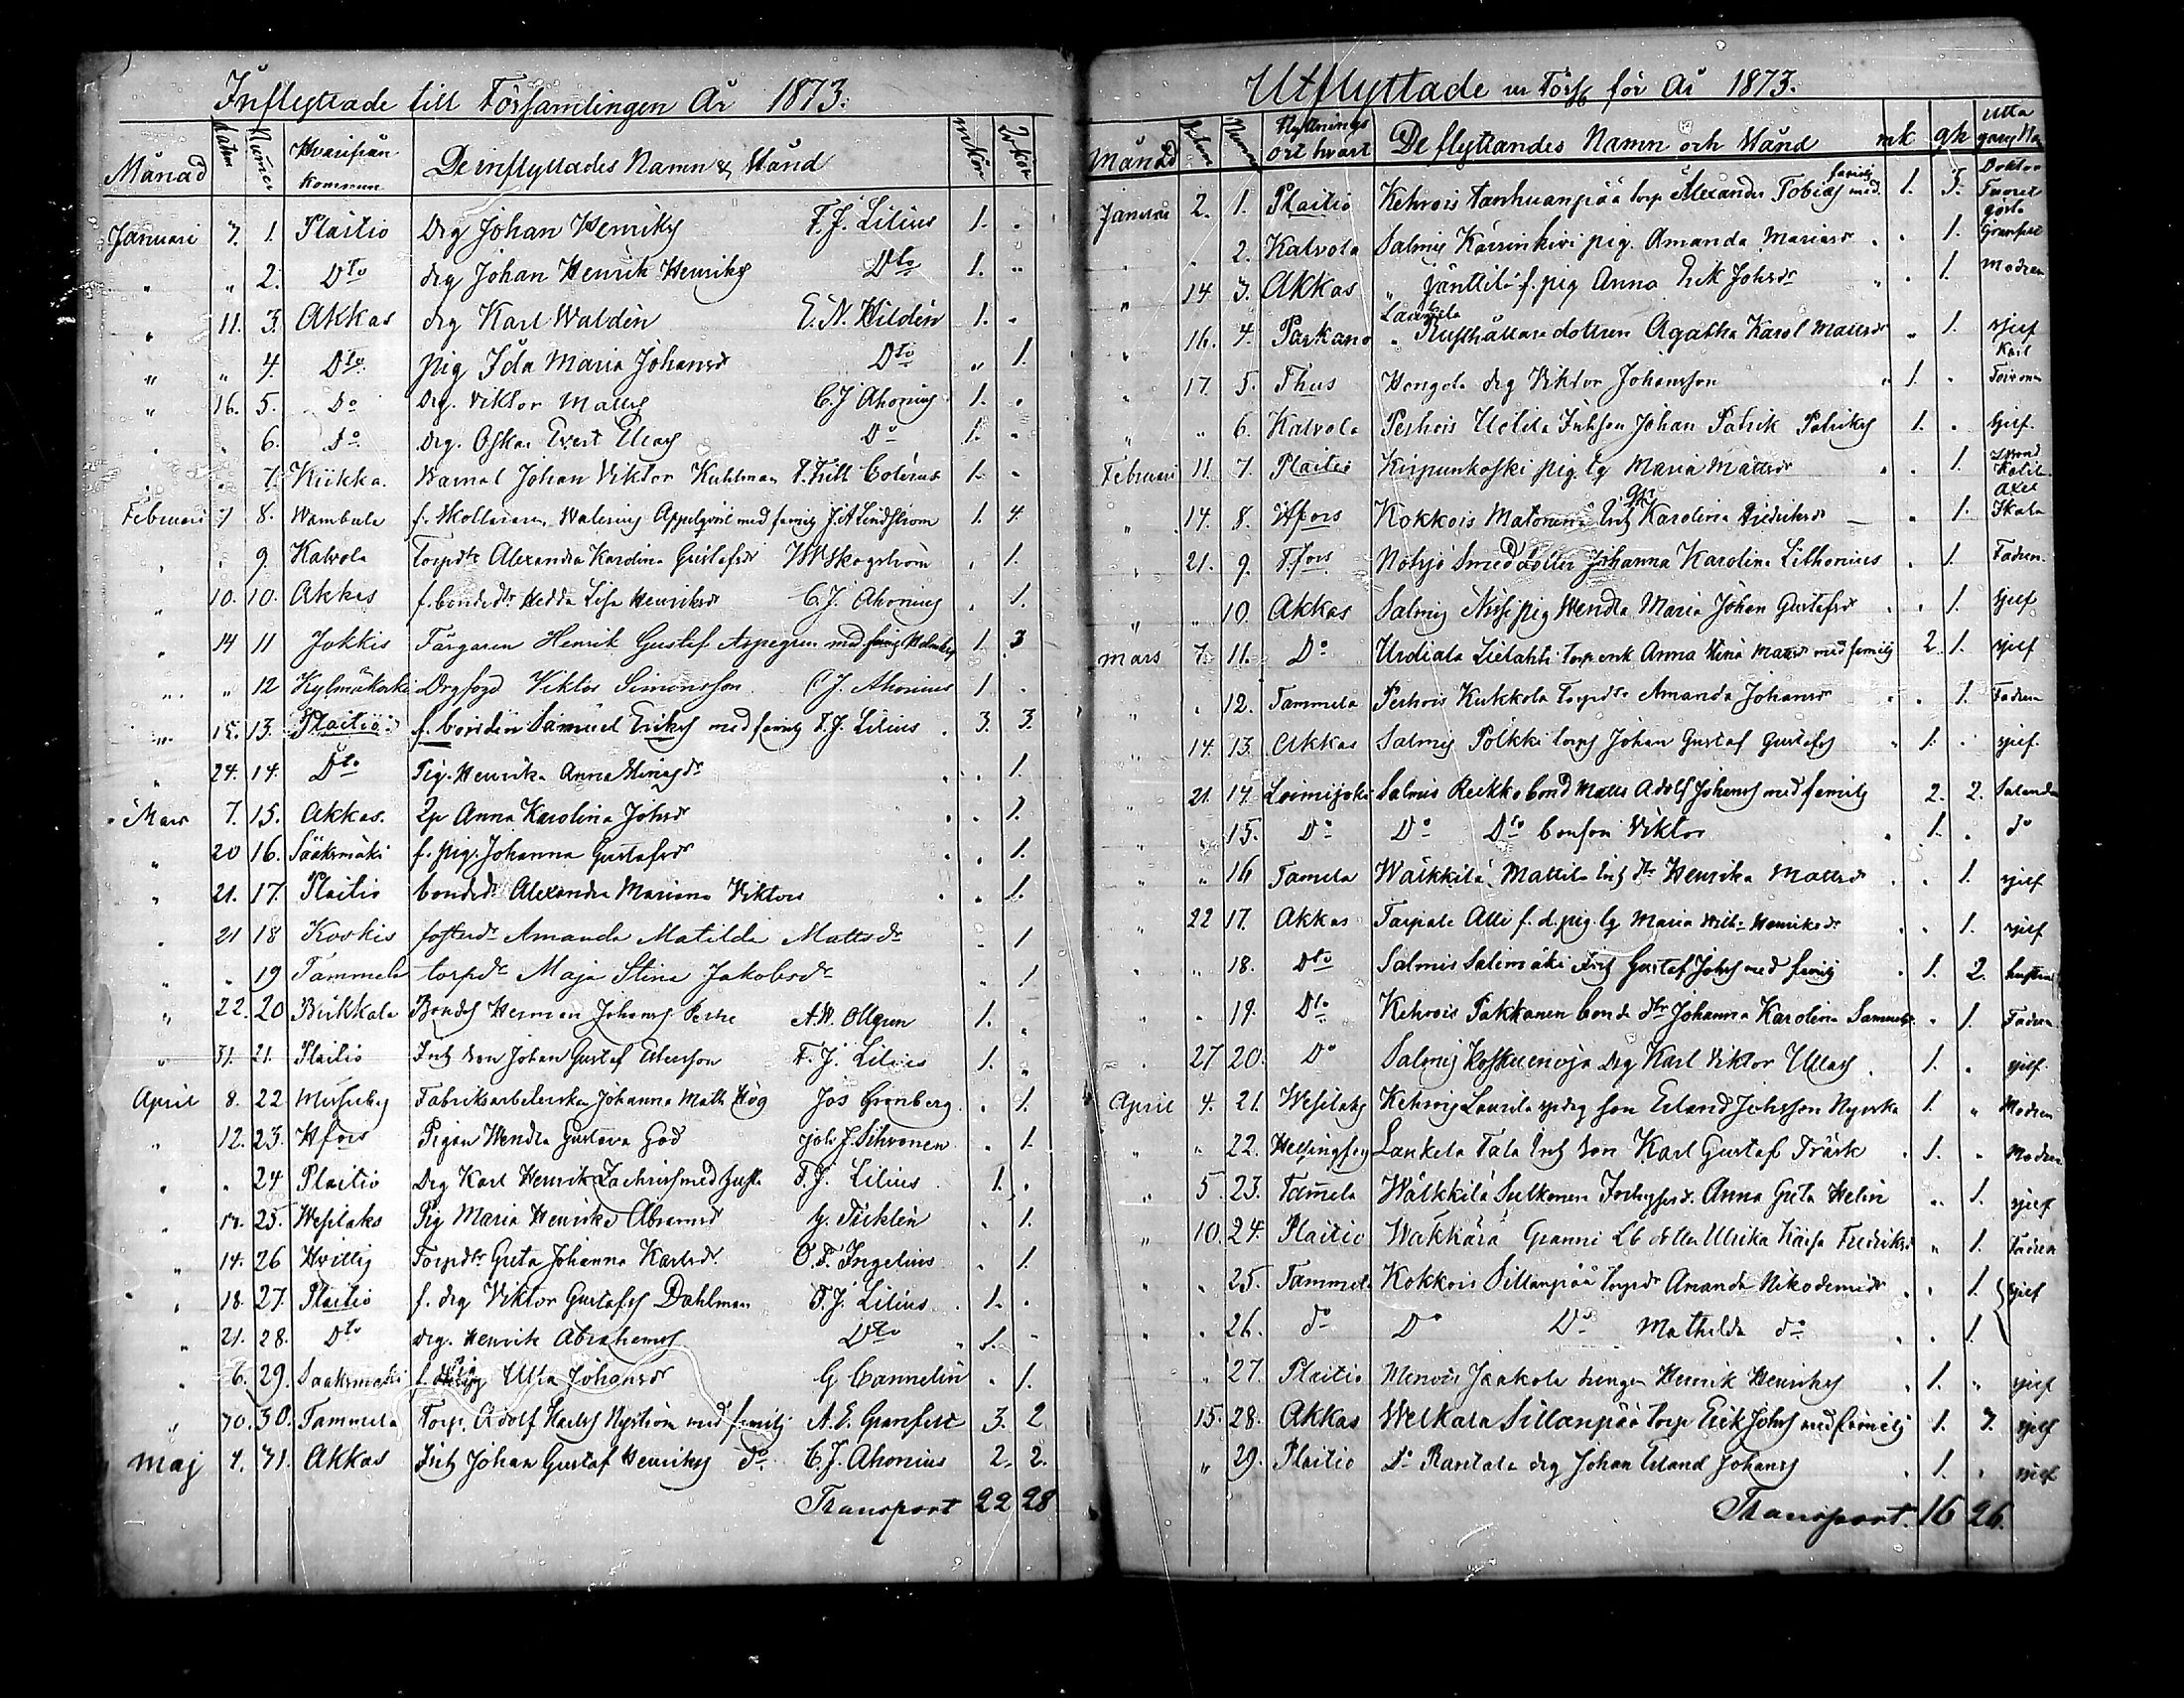 Inflyttade till Församlingen År 1873.
Månad Datum Numer Hvarifrån kommun De inflyttades Namn & Stånd m kön Qv kön
Januari 7. 1. Plaitio Drg Johan Henriks F. J. Lilius 1. "
" " 2. Dto drg Johan Henrik Henriks Dto 1. "
" 11. 3. Akkas drg Karl Waldén E. N. Hildén 1. "
" " 4. Dto pig Ida Maria Johansdr Dto " 1.
" 16. 5. Do Drg. Viktor Matts C. J Ahonius 1. "
" " 6. Do Drg. Oskar Evert Elias Do 1. "
" " 7. Kiikka. Johan Viktor Kuhlman 1. "
Februari 7 8. Wambula f. Skollararen Walerius Appelqvist med familj J. A Lindström 1. 4.
" " 9. Kalvola Torpdtr Alexandra Karolina Gustafsdr Skogström " 1.
" 10. 10. Akkas f. bondedtr Hedda Lisa Henriksdr C. J. Ahonius " 1.
" 14 11 Jokkis Färgaren Henrik Gustaf Aspegren med familj 1. 3
" " 12 Kylmäkoski Viktor Simonsson C J. Ahonius 1 "
" 15. 13. Plaitio f. bonden Samuel Eriks med familj F. J. Lilius 3. 3.
" 24. 14. Dto Pig. Henrika Anna " 1.
Mars 7. 15. Akkas. Qp Anna Karolina Johsdr " 1.
" 20 16. Sääksmäki f. pig. Johanna Gustafsdr " 1.
" 21. 17. Plaitio bondedr Alexandra Mariana Viktors " 1.
" 21 18 Koskis fosterdr Amanda Matilda Mattsdr " 1
" " 19 Tammela torpdr Maja Stina Jakobsdr " 1
" 22. 20 Birkkala Bonds Herman Johans A. W. Ollgren 1. "
" 31. 21. Plaitio Inh son Johan Gustaf F. J. Lilius 1. "
April 8. 22 Fabriksarbeterskan Johanna Math Hög Jos Grönberg " 1.
" 12. 23. Hfors Pigan Wendla Gustava God Joh. J. Sihvonen " 1.
" " 24 Plaitio Drg Karl Henrik Zachris med hustr F. J. Lilius 1. "
" 25. Wesilaks Pig Maria Henrika Abramsdr G. Ticklén " 1.
" 14. 26 Torpdtr Greta Johanna Karlsdr. O. F. Ingelius " 1.
" 18. 27. Plaitio f. drg Viktor Gustafs Dahlman F. J. Lilius 1. "
" 21. 28. Dto drg. Henrik Abrahams Dto 1. "
" 6. 29. Sääksmäki f. pig Ulla Johansdr G Cannelin " 1.
" 30. 30. Tammela Torp. Adolf Karls Nyström med familj A. E. Granfelt 3. 2
Maj 4. 31. Akkas Inh Johan Gustaf Henriks do C. J. Ahonius 2. 2.
Transport 22 28
Utflyttade ur Förs för År 1873.
Månad Datum Numer Flyttnings ort hvart De flyttandes Namn och Stånd mk qk Utta gary Na
Januari 2. 1. Plaitio Kehrois tanhuanpää torp Alexander Tobias med familj 1. 3. Doktor
" " 2. Kalvola Salmis Käsinkivi pig. Amanda Mariasdr " 1. Granfelt
" 14 3. Akkas " Jänttilä f. pig Anna Erik Johsdr " 1. Modren
" 16. 4. Parkano " Laurila Rusthållare dottren Agatha Karol Mattsdr " 1. sjelf
" 17. 5. Thus Hongola drg Viktor Johansson 1. " Karl Toivonen
" " 6. Kalvola Perhois Uotila Inhson Johan Patrik Patriks 1. " Sjelf.
Februari 11. 7. Plaitio Kirpunkoski pig. Maria Mattsdr " 1.
" 14. 8. Hfors Kokkois Inh Karolina Fredriksdr " 1. Axel
" 21. 9. T.fors Notsjö Smed dotter Johanna Karolina Lithonius " 1. Fadren.
" " 10. Akkas Salmis pig Wendla Maria Johan Gustafsdr " 1. Sjelf
Mars 7. 11. Do Urdiala torp enk Anna Stina Mattsdr med familj 2. 1. sjelf
" " 12. Tammela Perhois Kukkola Torpdtr Amanda Johansdr " 1. Fadren
" 14. 13. Akkas Salmis Pölkki torps Johan Gustaf Gustafs 1. " sjelf.
" 21. 14. Loimijoki Salmis Reikko bond Matts Adolf Johans med familj 2. 2.
" " 15. Do Do Dto bonson Viktor 1. " do
" " 16 Tamela Wälkkilä Mattila Inh dtr Henrika Mattsdr " 1. sjelf
" 22 17. Akkas Tarpala Alli f. d. pig. Maria Wilh. Henriksdr " 1. sjelf
" " 18. Dto Salmis Salimäki Inh Gustaf Johs med familj 1. 2. hustrun
" " 19. Dto Kehrois Pakkanen bonde dtr Johanna Karolina " 1. Fadren.
" 27 20. Do Salmis Koskuenoja Drg Karl Viktor Ullas 1. " sjelf.
April 4. 21. Wesilaks Kehrois Laurila son Erland Johsson 1. " Modren
" " 22. Helsingfors Laukela Tala Inh son Karl Gustaf Träsk 1. " Modren
" 5. 23. Tamela Wälkkilä Sulkonen Anna Greta Helin " 1. sjelf
" 10. 24. Plaitio Wäkkärä Granni dotter Ulrika Kaisa Fredriksdr " 1. Fadren
" " 25. Tammela Kokkois Sillanpää torpdr Amanda Nikodemidr " 1. sjelf
" " 26. do Do Do Mathilda do " 1.
" 27. Plaitio Menois Jaakola drengen Henrik Henriks 1. " sjelf
15. 28. Akkas Welkala Sillanpää torp Erik Johs med familj 1. 3. sjelf
" 29. Plaitio Do Rantala drg Johan Erland Johans 1. " sjelf
Transport. 16 26.